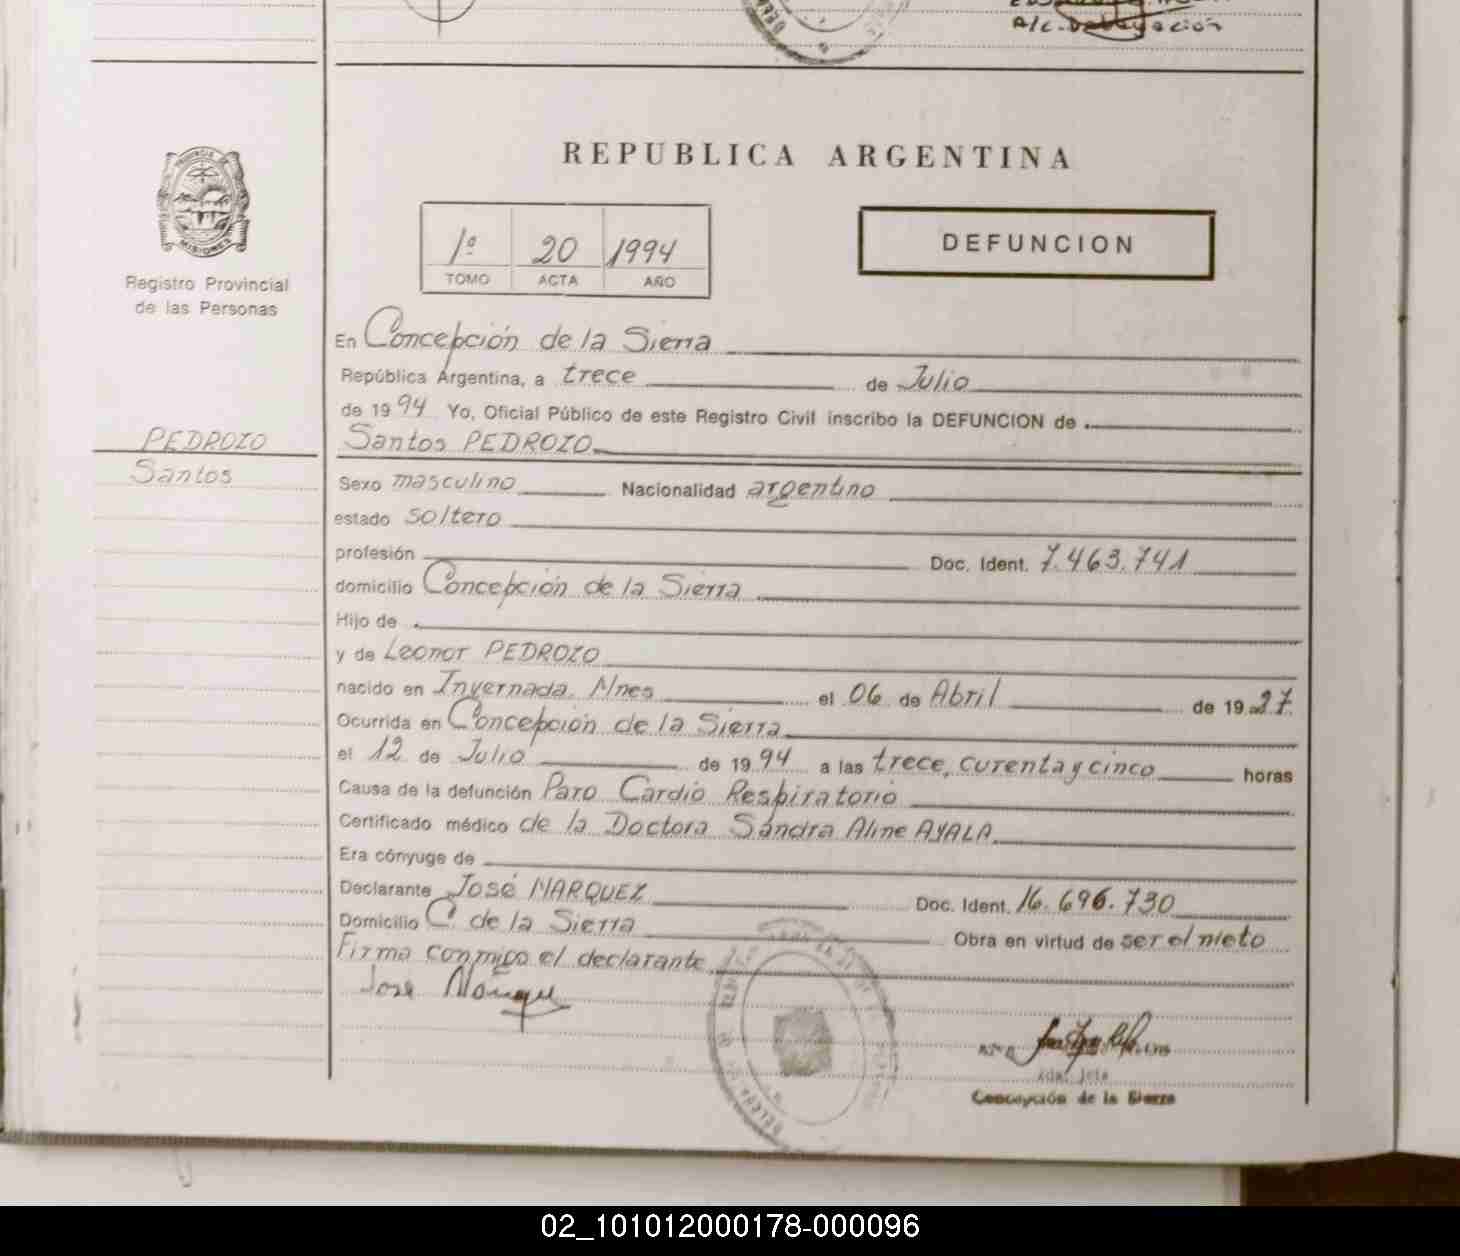 A/C. Delegación
PROVINCIA DE
MISIONES
Registro Provincial
de las Personas
REPUBLICA ARGENTINA
1º 20 1994
TOMO ACTA AÑO
DEFUNCION
En Concepción de la Sierra
República Argentina, a trece de Julio
de 1994 Yo, Oficial Público de este Registro Civil inscribo la DEFUNCION de
PEDROZO
Santos
Santos PEDROZO
Sexo masculino Nacionalidad argentino
estado soltero
profesión Doc. Ident. 7.463.741
domicilio Concepción de la Sierra
Hijo de
y de Leonor PEDROZO
nacido en Invernada. Mnes el 06 de Abril de 1927.
Ocurrida en Concepción de la Sierra
el 12 de Julio de 1994 a las trece, curenta y cinco horas
Causa de la defunción Paro Cardio Respiratorio
Certificado médico de la Doctora Sandra Aline AYALA.
Era cónyuge de
Declarante José MARQUEZ Doc. Ident. 16.696.730
Domicilio C. de la Sierra Obra en virtud de ser el nieto
Firma conmigo el declarante
Jose Marque
Concepción de la Sierra
02_101012000178-000096